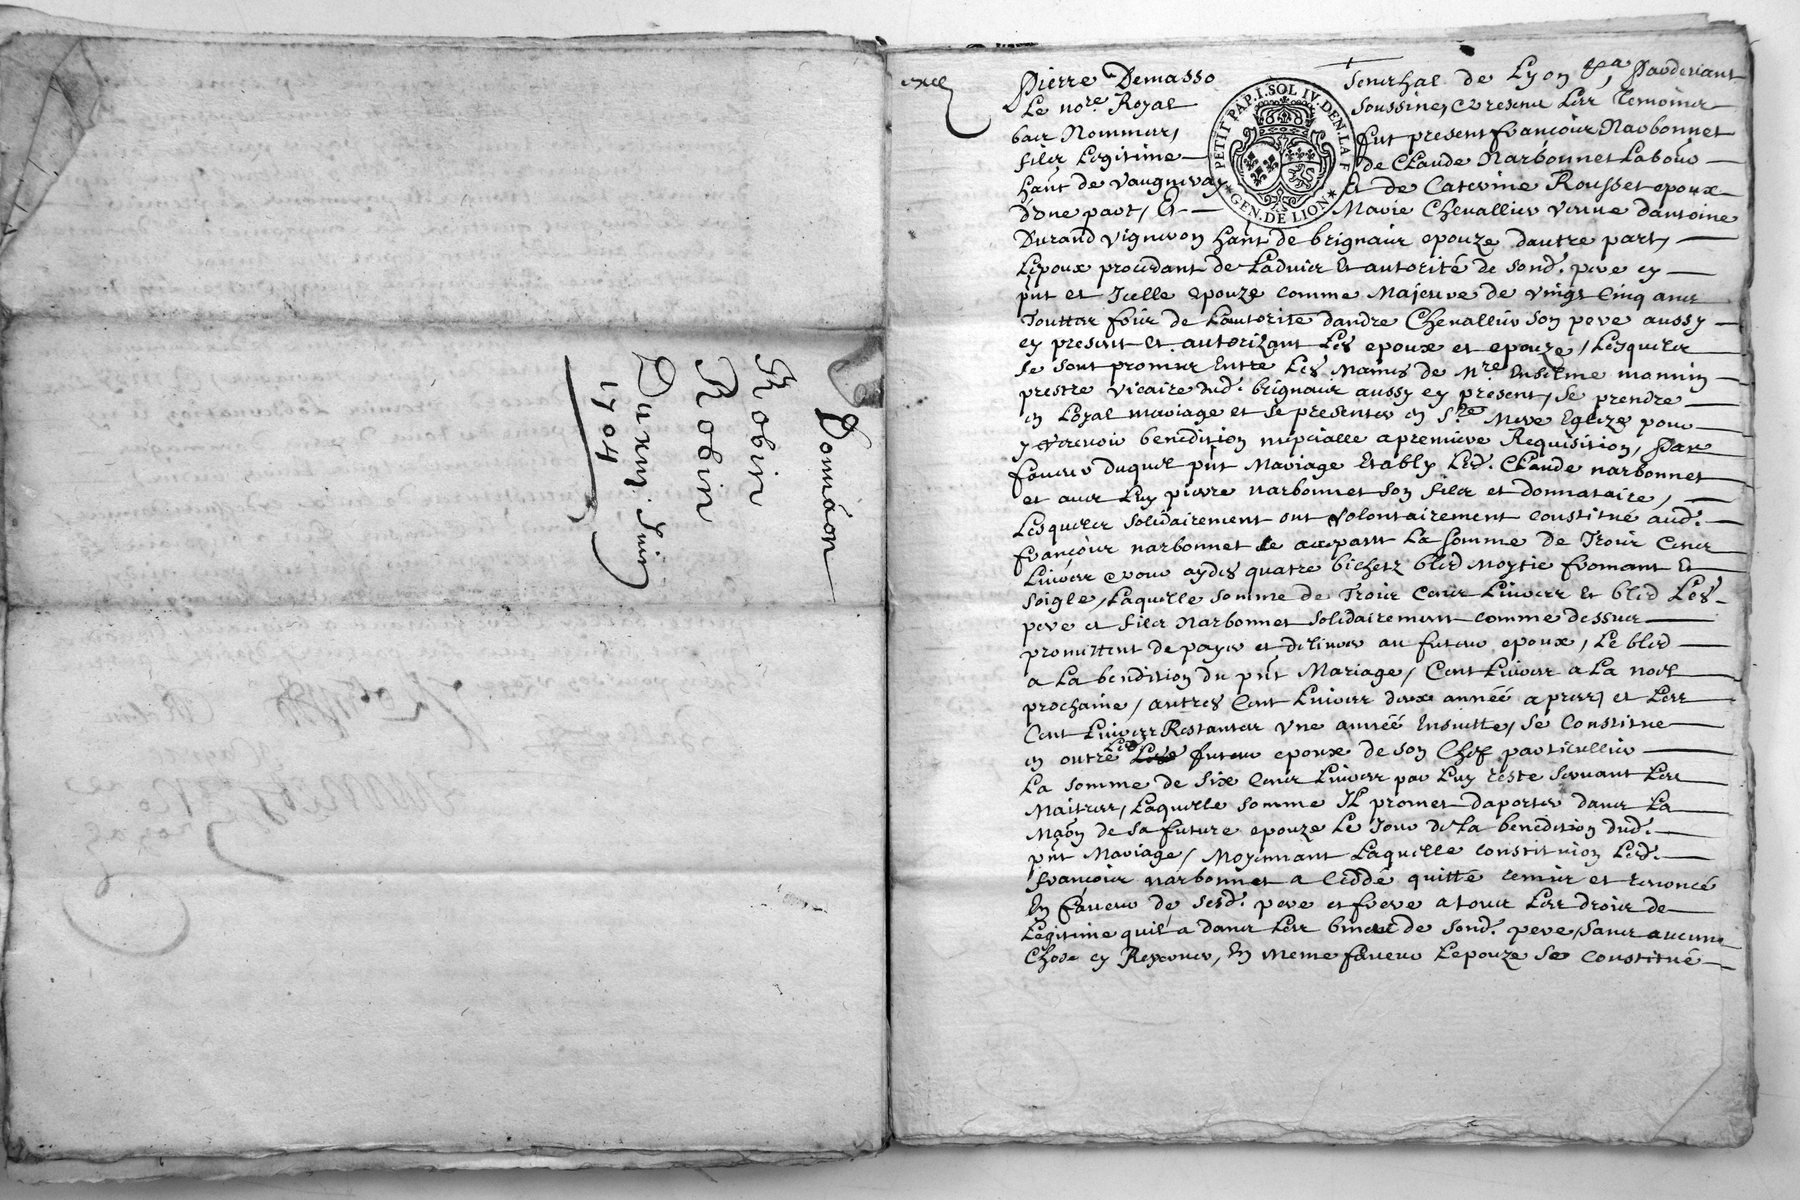 Donnaon
Robin
Robin
Du xm. Juin
1704
exec
Pierre Demasso Senechal de Lyon &a Pardevant
Le nore. Royal soussigne, et presens Les temoins
bas Nommes, fut present francois Narbonnet
fils Legitime de Claude Narbonnet Labour
hant de vaugneray Et de Caterine Rousset epoux
d'une part, Et Marie Chevallier veuve dantoine
Durand vigneron hant de brignais epouze dautre part,
Lepoux procedant de Ladvis Et autorité de sond. pere cy
pnt et Icelle epouze comme Majeure de vingt Cinq ans
Touttes fois de Lautorité dandre Chevallier son pere aussy
cy present Et autorizant Les epoux et epouze, Lesquels
se sont promis Entre Les Mains de Mre
prestre vicaire dud. brignais aussy cy present, se prendre
en Loyal mariage et se presenter en Ste. Mere Eglize pour
y recevoir benediction nupcialle a premiere Requisition, Par
faveur duquel pnt Mariage Etably Led. Claude narbonnet
et avec Luy pierre narbonnet son fils et donnataire,
Lesquels solidairement ont volontairement constitué aud.
francois narbonnet ce acceptant La somme de Trois Cens
Livres et pour aydes quatre bichets bled Moytie fromant Et
soigle, Laquelle somme de Trois Cens Livres Et bled Les
pere et fils Narbonnet solidairement comme dessus
promettent de payer et delivrer au futeur epoux, Le bled
a La bendition du pnt Mariage, Cent Livres a La noel
prochaine, autres Cent Livres deux année apres, et Les
Cent Livres Restantes une année Ensuitte, se Constitue
en outre Led. futeur epoux de son Chef particullier
La somme de six Cens Livres par Luy reste servant Les
Maitres, Laquelle somme Il promet daporter dans La
Maon de sa future epouze Le Jour de La benedition dud.
pnt Mariage, Moyennant Laquelle constitution Led.
francois narbonnet a Ceddé quitté remis et renoncé
En faveur de sesd. pere et frere a tous Les droits de
Legitime quil a dans Les biens de sond. pere, sans aucune
Chose cy Reserver, En meme faveur Lepouze se constitué
PETIT PAP. I. SOL IV. DEN. LA F.
GEN. DE LION